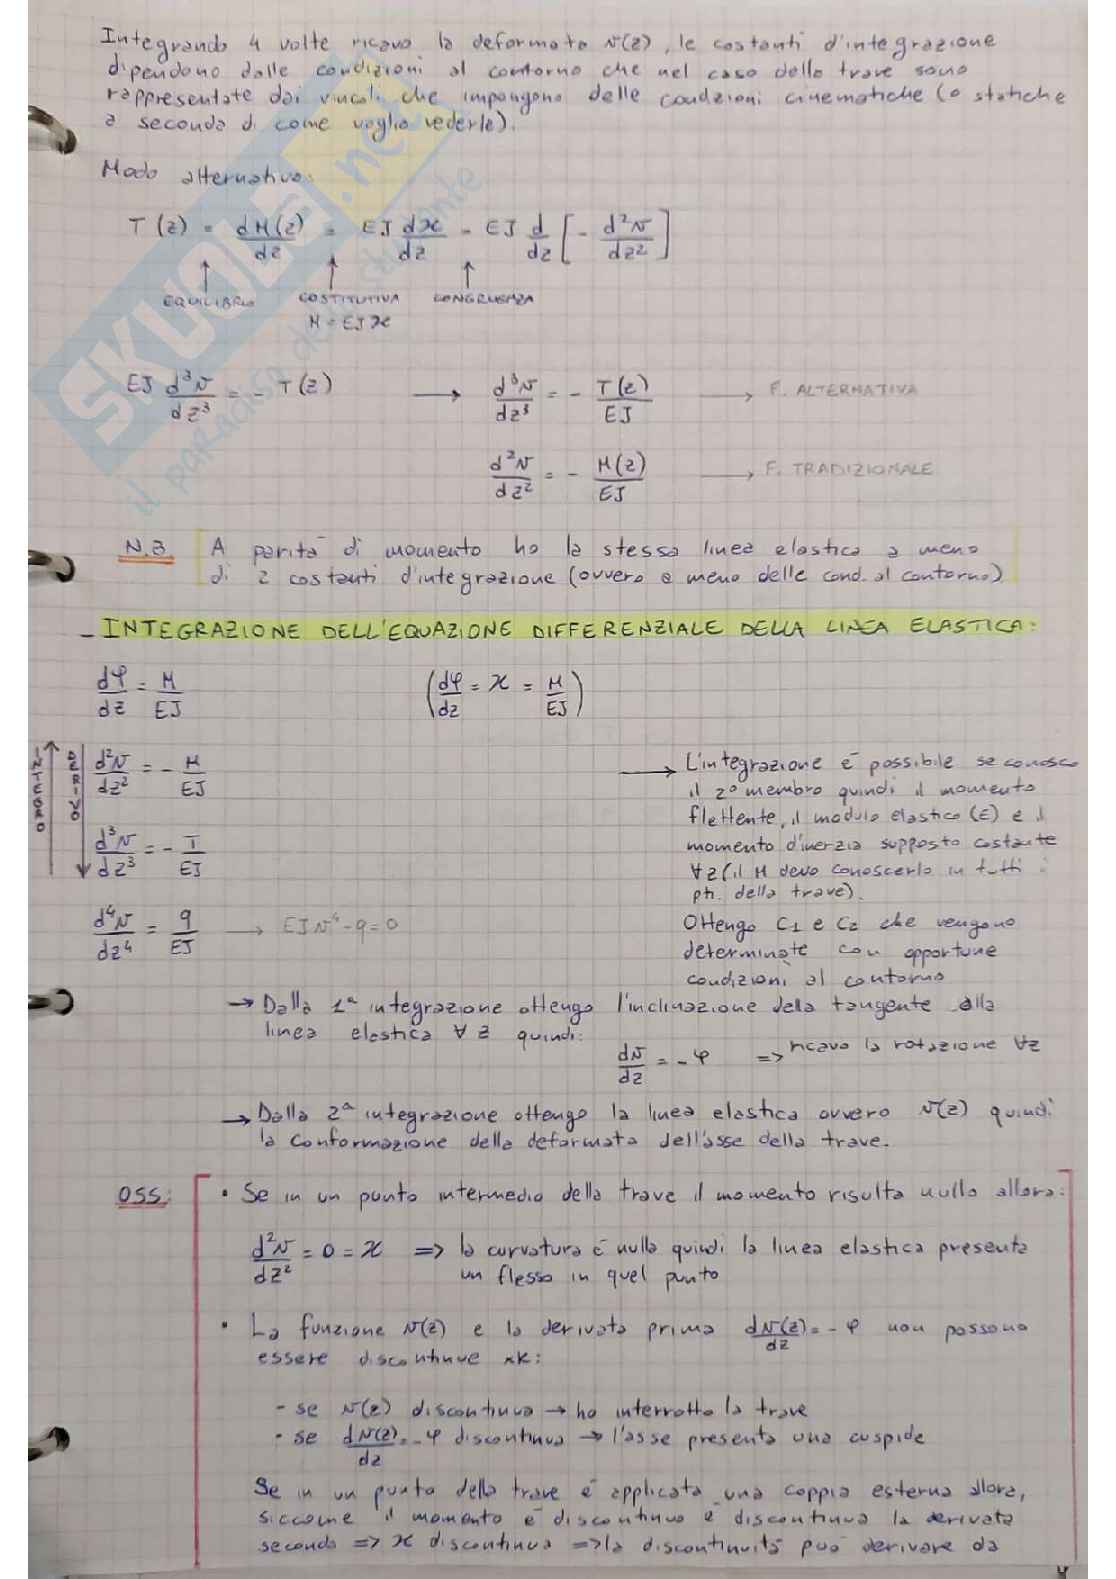 Integrando 4 volte ricavo la deformata v(z), le costanti d'integrazione
dipendono dalle condizioni al contorno che nel caso della trave sono
rappresentate dai vincoli che impongono delle condizioni cinematiche (o statiche
a seconda di come voglio vederle).
Modo alternativo:
T(z) = dM(z)/dz = EJ dχ/dz = EJ d/dz [- d²v/dz²]
EQUILIBRIO COSTITUTIVA CONGRUENZA
M = EJχ
EJ d³v/dz³ = - T(z) → d³v/dz³ = - T(z)/EJ → F. ALTERNATIVA
d²v/dz² = - M(z)/EJ → F. TRADIZIONALE
N.B A parità di momento ho la stessa linea elastica a meno
di 2 costanti d'integrazione (ovvero a meno delle cond. al contorno)
- INTEGRAZIONE DELL'EQUAZIONE DIFFERENZIALE DELLA LINEA ELASTICA:
dφ/dz = M/EJ (dφ/dz = χ = M/EJ)
INTEGRO
DERIVO
d²v/dz² = - M/EJ
d³v/dz³ = - T/EJ
d⁴v/dz⁴ = q/EJ → EJv⁴-q=0
→ L'integrazione è possibile se conosco
il 2° membro quindi il momento
flettente, il modulo elastico (E) e il
momento d'inerzia supposto costante
∀z (il M devo conoscerlo in tutti i
pti. della trave).
Ottengo C1 e C2 che vengono
determinate con opportune
condizioni al contorno
→ Dalla 1ª integrazione ottengo l'inclinazione della tangente alla
linea elastica ∀z quindi:
dv/dz = - φ => ricavo la rotazione ∀z
→ Dalla 2ª integrazione ottengo la linea elastica ovvero v(z) quindi
la conformazione della deformata dell'asse della trave.
OSS: • Se in un punto intermedio della trave il momento risulta nullo allora:
d²v/dz² = 0 = χ => la curvatura è nulla quindi la linea elastica presenta
un flesso in quel punto
• La funzione v(z) e la derivata prima dv(z)/dz = - φ non possono
essere discontinue xk:
- se v(z) discontinua → ho interrotto la trave
- se dv(z)/dz = - φ discontinua → l'asse presenta una cuspide
Se in un punto della trave è applicata una coppia esterna allora,
siccome il momento è discontinuo è discontinua la derivata
seconda => χ discontinua => la discontinuità può derivare da
SKUOLA.net
il paradiso dello studente